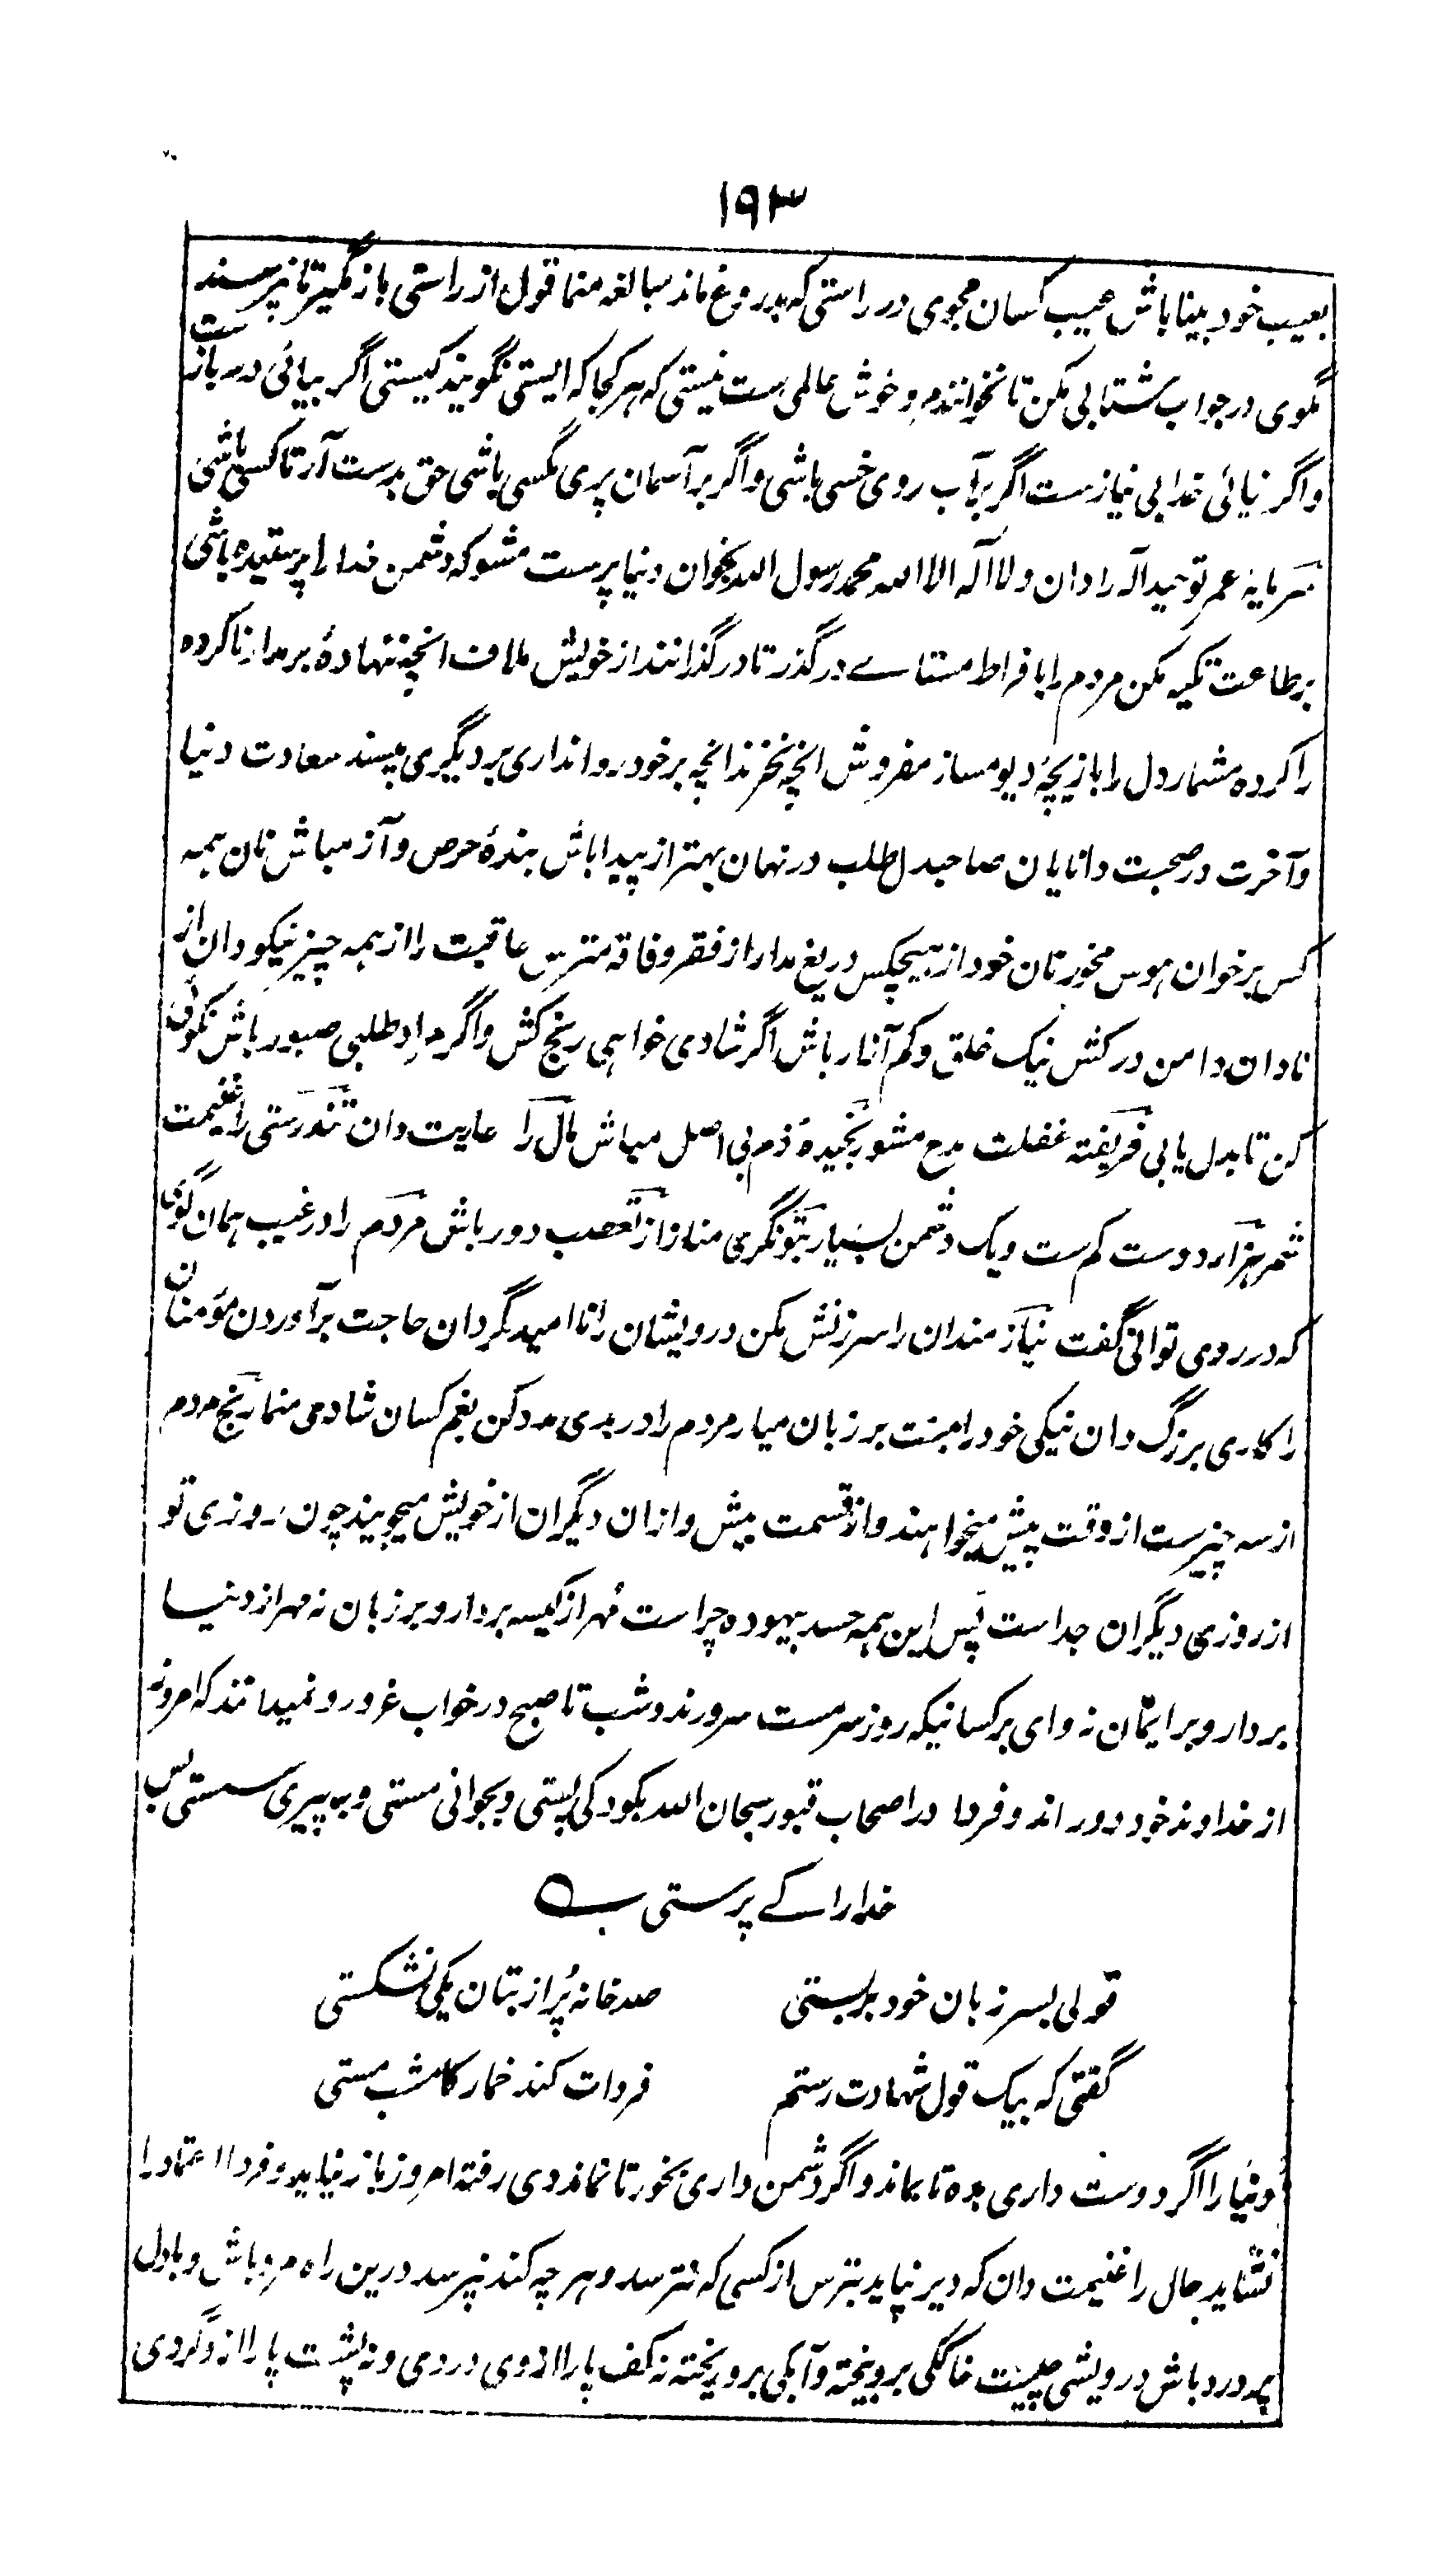 ۱۹۳
بعیب خود بینا باش عیب کسان مجوی در راستی که بدروغ ماند مبالغه منما قول از راستی باز مگیر تا نپرسند
مگوی در جواب شتابی مکن تا نخوانند مرو خوش عالمی ست نیستی که هر کجا که ایستی نگویند کیستی اگر بیائی در باز ست
و اگر نیائی خدا بی نیاز ست اگر بر آب روی خسی باشی و اگر بر آسمان پری مگسی باشی حق بدست آر تا کسی باشی
سرمایه عمر توحید آله را دان و لا آله الا الله محمد رسول الله بخوان دنیا پرست مشو که دشمن خدا را پرستیده باشی
بر طاعت تکیه مکن مردم را بافراط مستاے در گذر تا در گذرانند از خویش ملاف انچه ننهادۀ بر مدار ناکرده
را کرده مشمار دل را بازیچۀ دیو مساز مفروش انچه نخرند انچه بر خود روا نداری بر دیگری مپسند سعادت دنیا
و آخرت در صحبت دانایان صاحبدل طلب در نهان بهتر از پیدا باش بندۀ حرص و آز مباش نان همه
کس بر خوان هوس مخور نان خود از هیچکس دریغ مدار از فقر و فاقه مترس عاقبت را از همه چیز نیکو دان از
نادان دامن در کش نیک خلق و کم آزار باش اگر شادی خواهی رنج کش و اگر مراد طلبی صبور باش نکوئی
کن تا بدل یابی فریفته غفلت مدح مشو رنجیدۀ ذم بی اصل مباش مال را عاریت دان تندرستی را غنیمت
شمر هزار دوست کم ست و یک دشمن بسیار بتونگری مناز از تعصب دور باش مردم را در غیب همان گوی
که در روی توانی گفت نیاز مندان را سرزنش مکن درویشان را نا امید مگردان حاجت برآوردن مؤمنان
را کاری بزرگ دان نیکی خود را بمنت بر زبان میار مردم را در بدی مدد مکن بغم کسان شادی منما رنج مردم
از سه چیز ست از وقت پیش میخواهند و از قسمت بیش و ازان دیگران از خویش میجویند چون روزی تو
از روزی دیگران جدا ست پس این همه حسد بیهوده چرا ست مُهر از کیسه بردار و بر زبان نه مهر از دنیا
بردار و بر ایمان نه وای بر کسانیکه روز سر مست سرورند و شب تا صبح در خواب غرور و نمیدانند که امروز
از خداوند خود دور اند و فردا در اصحاب قبور سبحان الله بکودکی پستی و بجوانی مستی و به پیری سستی پس
خدا را کے پرستی
قولی بسر زبان خود بر بستی
صد خانه پُر از بتان یکی نشکستی
گفتی که بیک قول شهادت رستم
فردات کند خمار کامشب مستی
دنیا را اگر دوست داری بده تا بماند و اگر دشمن داری بخور تا نماند دی رفته امروز باز نیاید و فردا اعتماد را
نشاید حال را غنیمت دان که دیر نپاید بترس از کسی که نترسد و هر چه کند نپرسد درین راه مرد باش و با دل
پر درد باش درویشی چیست خاککی بر و بیخته و آبکی بر و ریخته نه کف پا را از وی دردی و نه پشت پا را از و گردی